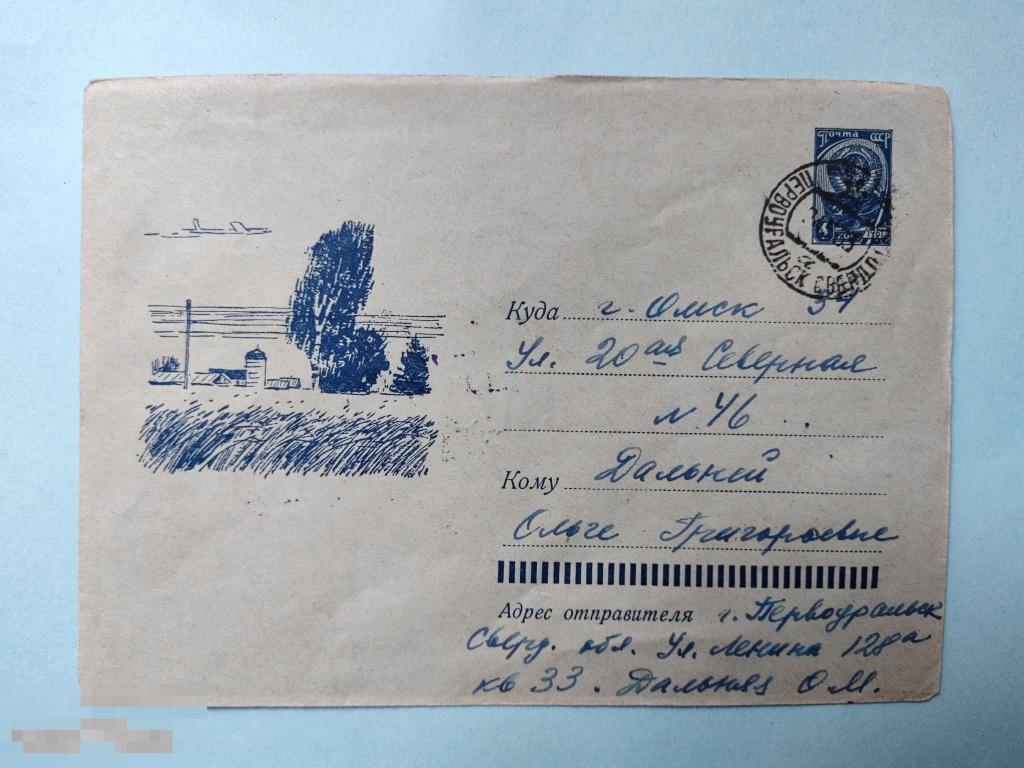 Почта СССР
4
ПЕРВОУРАЛЬСК СВЕРДЛ
Куда г. Омск 34
Ул. 20ая Северная
N 46
Кому Дальней
Ольге Григорьевне
Адрес отправителя г. Первоуральск
Сверд. обл. Ул. Ленина 128а
кв 33. Дальняя О.М.